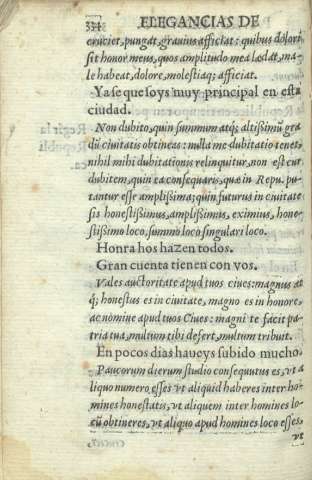 334 ELEGANCIAS DE
cruciet, pungat, grauius afficiat: quibus dolori
sit honor meus, quos amplitudo mea lædat, ma
le habeat, dolore, molestiaq; afficiat.
Ya se que soys muy principal en esta
ciudad.
Non dubito, quin summum atq; altissimũ gra
dũ ciuitatis obtineas: nulla me dubitatio tenet,
nihil mihi dubitationis relinquitur, non est cur
dubitem, quin ea consequaris, quæ in Repu. pu-
tantur esse amplissima; quin futurus in ciuitate
sis honestissimus, amplissimus, eximius, hone-
stissimo loco, summo loco singulari loco.
Honra hos hazen todos.
Gran cuenta tienen con vos.
Vales auctoritate apud tuos ciues: magnus at
q; honestus es in ciuitate, magno es in honore,
ac nomine apud tuos Ciues: magni te facit pa-
tria tua, multum tibi defert, multum tribuit.
En pocos dias haueys subido mucho.
Paucorum dierum studio consequutus es, vt a
liquo numero esses vt aliquid haberes inter ho-
mines honestatis, vt aliquem inter homines lo-
cũ obtineres, vt aliquo apud homines loco esses,
vt